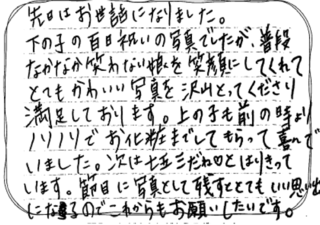 先日はお世話になりました。
下の子の百日祝いの写真でしたが、普段
なかなか笑わない娘を笑顔にしてくれて
とてもかわいい写真を沢山とってくださり
満足しております。上の子も前の時より
ノリノリでお化粧までしてもらって喜んで
いました。次は七五三だね♡とはりきって
います。節目に写真として残すととてもいい思い出
になるのでこれからもお願いしたいです。